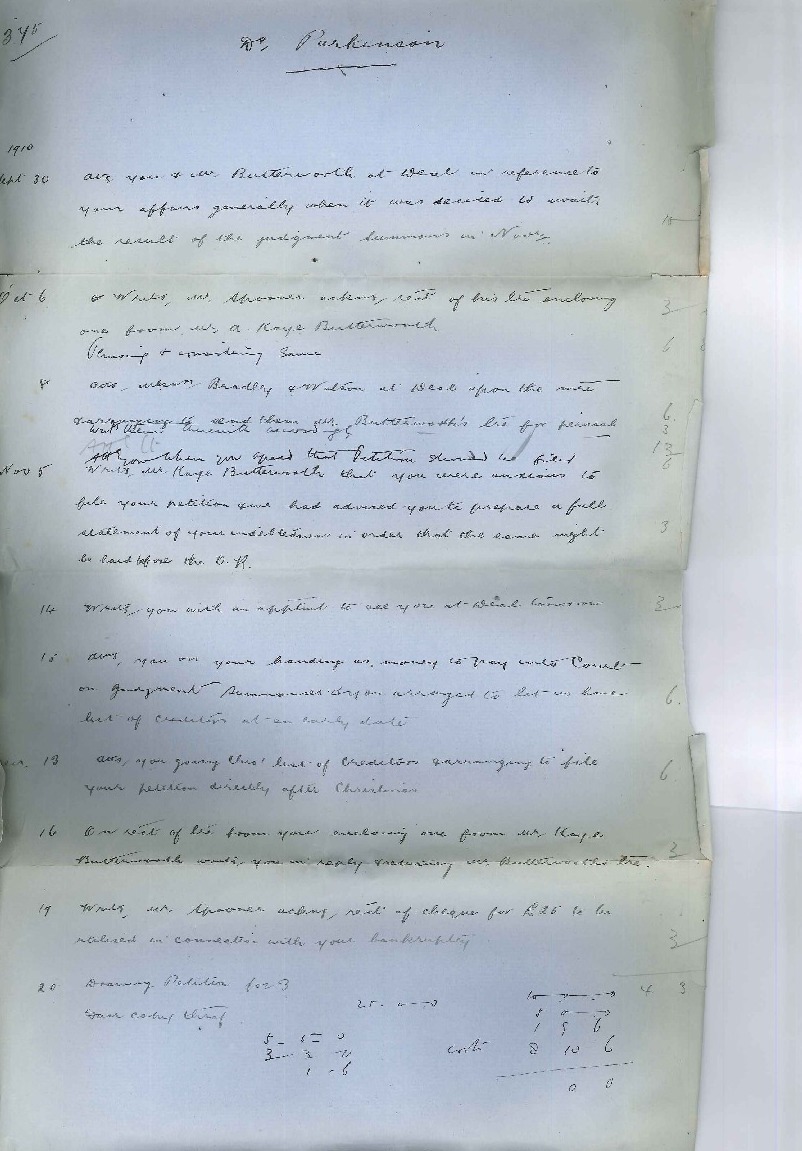 375
Dr. Parkinson
1910
Sept 30 Attg you & Mr. Butterworth at Deal in reference to
your affairs generally when it was decided to await
the result of the judgment summons in Novr.
Oct 6 Writg Mr. Spooner ackng rect of his lre enclosing 3
one from Mr. A. Kaye Butterworth
Perusing & considering same 6
8 Attg Messrs Bradley & Wilson at Deal upon the
arranging to send them Mr. Butterworth's lre for perusal 6
3
Attg you when you agreed that Petition should be filed
Nov 5 Writg Mr. Kaye Butterworth that you were anxious to
file your petition & we had advised you to prepare a full
statement of your indebtedness in order that the same might 3
be laid before the O.R.
14 Writg you with an appointt to see you at Deal tomorrow 3
15 Attg you on your handing us money to pay into Court
on Judgment Summonses & you arranged to let us have 6
list of creditors at an early date
13 Attg you going thro' list of Creditors & arranging to file 6
your petition directly after Christmas
16 On rect of lre from you enclosing one from Mr. Kaye
Butterworth writg you in reply & returning Mr. Butterworths lre. 3
19 Writg Mr. Spooner ackng rect of cheque for £25 to be
utilised in connection with your bankruptcy 3
4 3
20 Drawing Petition fos 3
25 - 0 - 0
10 - - 0
5 - 0
1 9 6
5 - 5 - 0
3 - 3 - 0
1 - 6
costs 8 10 6
0 0